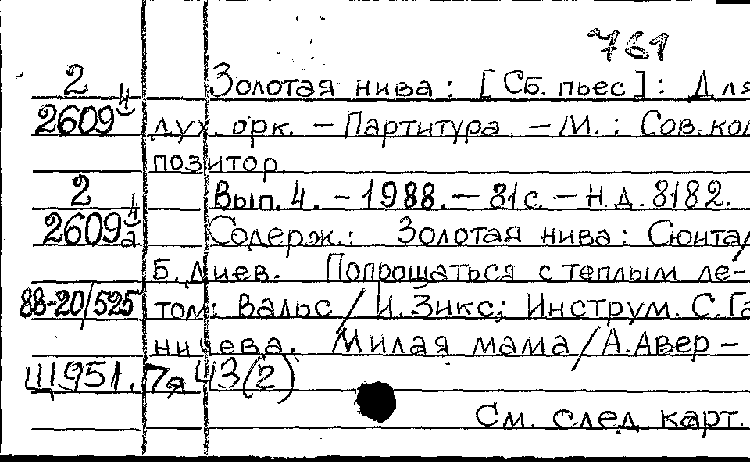 761
2 Золотая нива: [Сб. пьес]: Для
2609 дух. орк. – Партитура. – М.: Сов. ком
позитор.
2 Вып. 4. – 1988. – 81 с. – Н.Д. 8182.
2609 Содерж.: Золотая нива: Сюита/
Б. Диев. Попрощаться с теплым ле-
88-20/525 том: Вальс/И. Зикс; Инструм. С. Га
ничева. Милая мама/А. Авер-
Щ951.7я43(2)
См. след. карт.